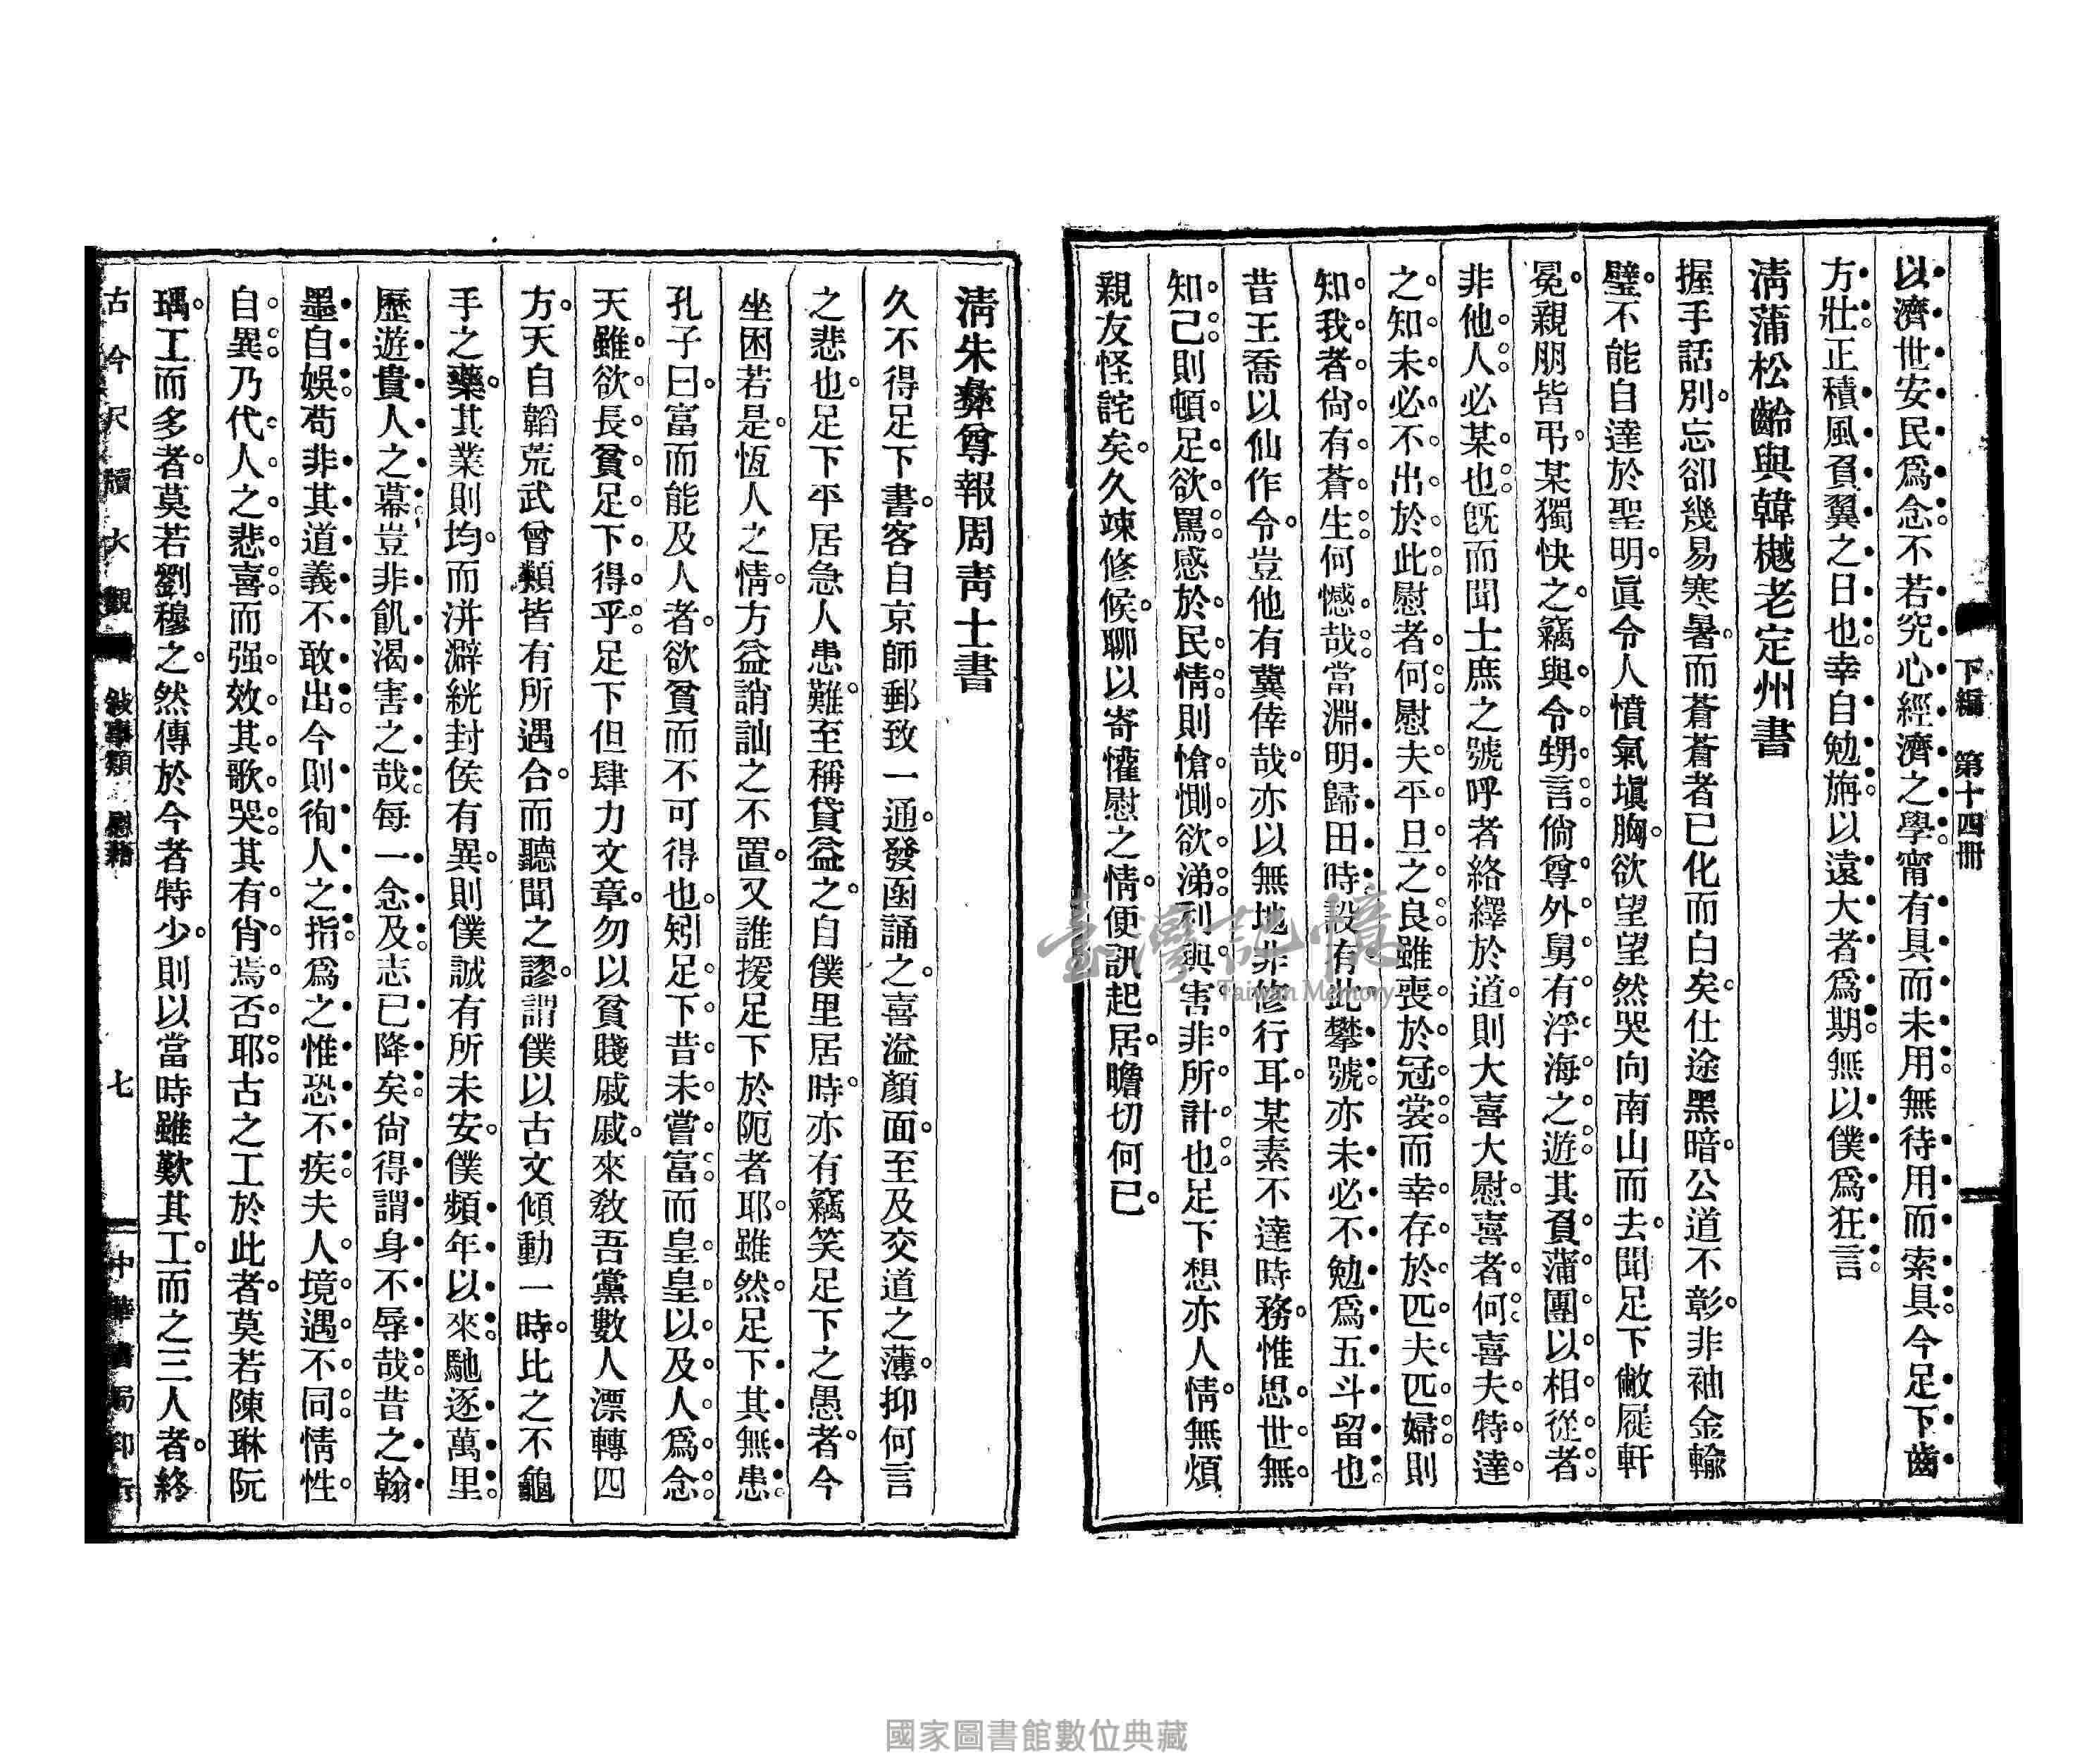 下編 第十四冊
以濟世安民爲念不若究心經濟之學甯有具而未用無待用而索具今足下齒
方壯正積風負翼之日也幸自勉旃以遠大者爲期無以僕爲狂言
淸蒲松齡與韓樾老定州書
握手話別忘卻幾易寒暑而蒼蒼者已化而白矣仕途黑暗公道不彰非袖金輸
璧不能自達於聖明眞令人憤氣塡胸欲望望然哭向南山而去聞足下敝屣軒
冕親朋皆弔某獨快之竊與令甥言倘尊外舅有浮海之遊其負蒲團以相從者
非他人必某也旣而聞士庶之號呼者絡繹於道則大喜大慰喜者何喜夫特達
之知未必不出於此慰者何慰夫平旦之良雖喪於冠裳而幸存於匹夫匹婦則
知我者尙有蒼生何憾哉當淵明歸田時設有此攀號亦未必不勉爲五斗留也
昔王喬以仙作令豈他有冀倖哉亦以無地非修行耳某素不達時務惟思世無
知己則頓足欲罵感於民情則愴惻欲涕利與害非所計也足下想亦人情無煩
親友怪詫矣久竦修候聊以寄懽慰之情便訊起居瞻切何已
淸朱彝尊報周靑士書
久不得足下書客自京師郵致一通發函誦之喜溢顏面至及交道之薄抑何言
之悲也足下平居急人患難至稱貸益之自僕里居時亦有竊笑足下之愚者今
坐困若是恆人之情方益誚訕之不置又誰援足下於阨者耶雖然足下其無患
孔子曰富而能及人者欲貧而不可得也矧足下昔未嘗富而皇皇以及人爲念
天雖欲長貧足下得乎足下但肆力文章勿以貧賤戚戚來敎吾黨數人漂轉四
方天自韜荒武曾類皆有所遇合而聽聞之謬謂僕以古文傾動一時比之不龜
手之藥其業則均而洴澼絖封侯有異則僕誠有所未安僕頻年以來馳逐萬里
歷遊貴人之幕豈非飢渴害之哉每一念及志已降矣尙得謂身不辱哉昔之翰
墨自娛苟非其道義不敢出今則徇人之指爲之惟恐不疾夫人境遇不同情性
自異乃代人之悲喜而强效其歌哭其有肖焉否耶古之工於此者莫若陳琳阮
瑀工而多者莫若劉穆之然傳於今者特少則以當時雖歎其工而之三人者終
古今尺牘大觀 敍事類 慰藉 七 中華書局印行
臺灣記憶
Taiwan Memory
國家圖書館數位典藏